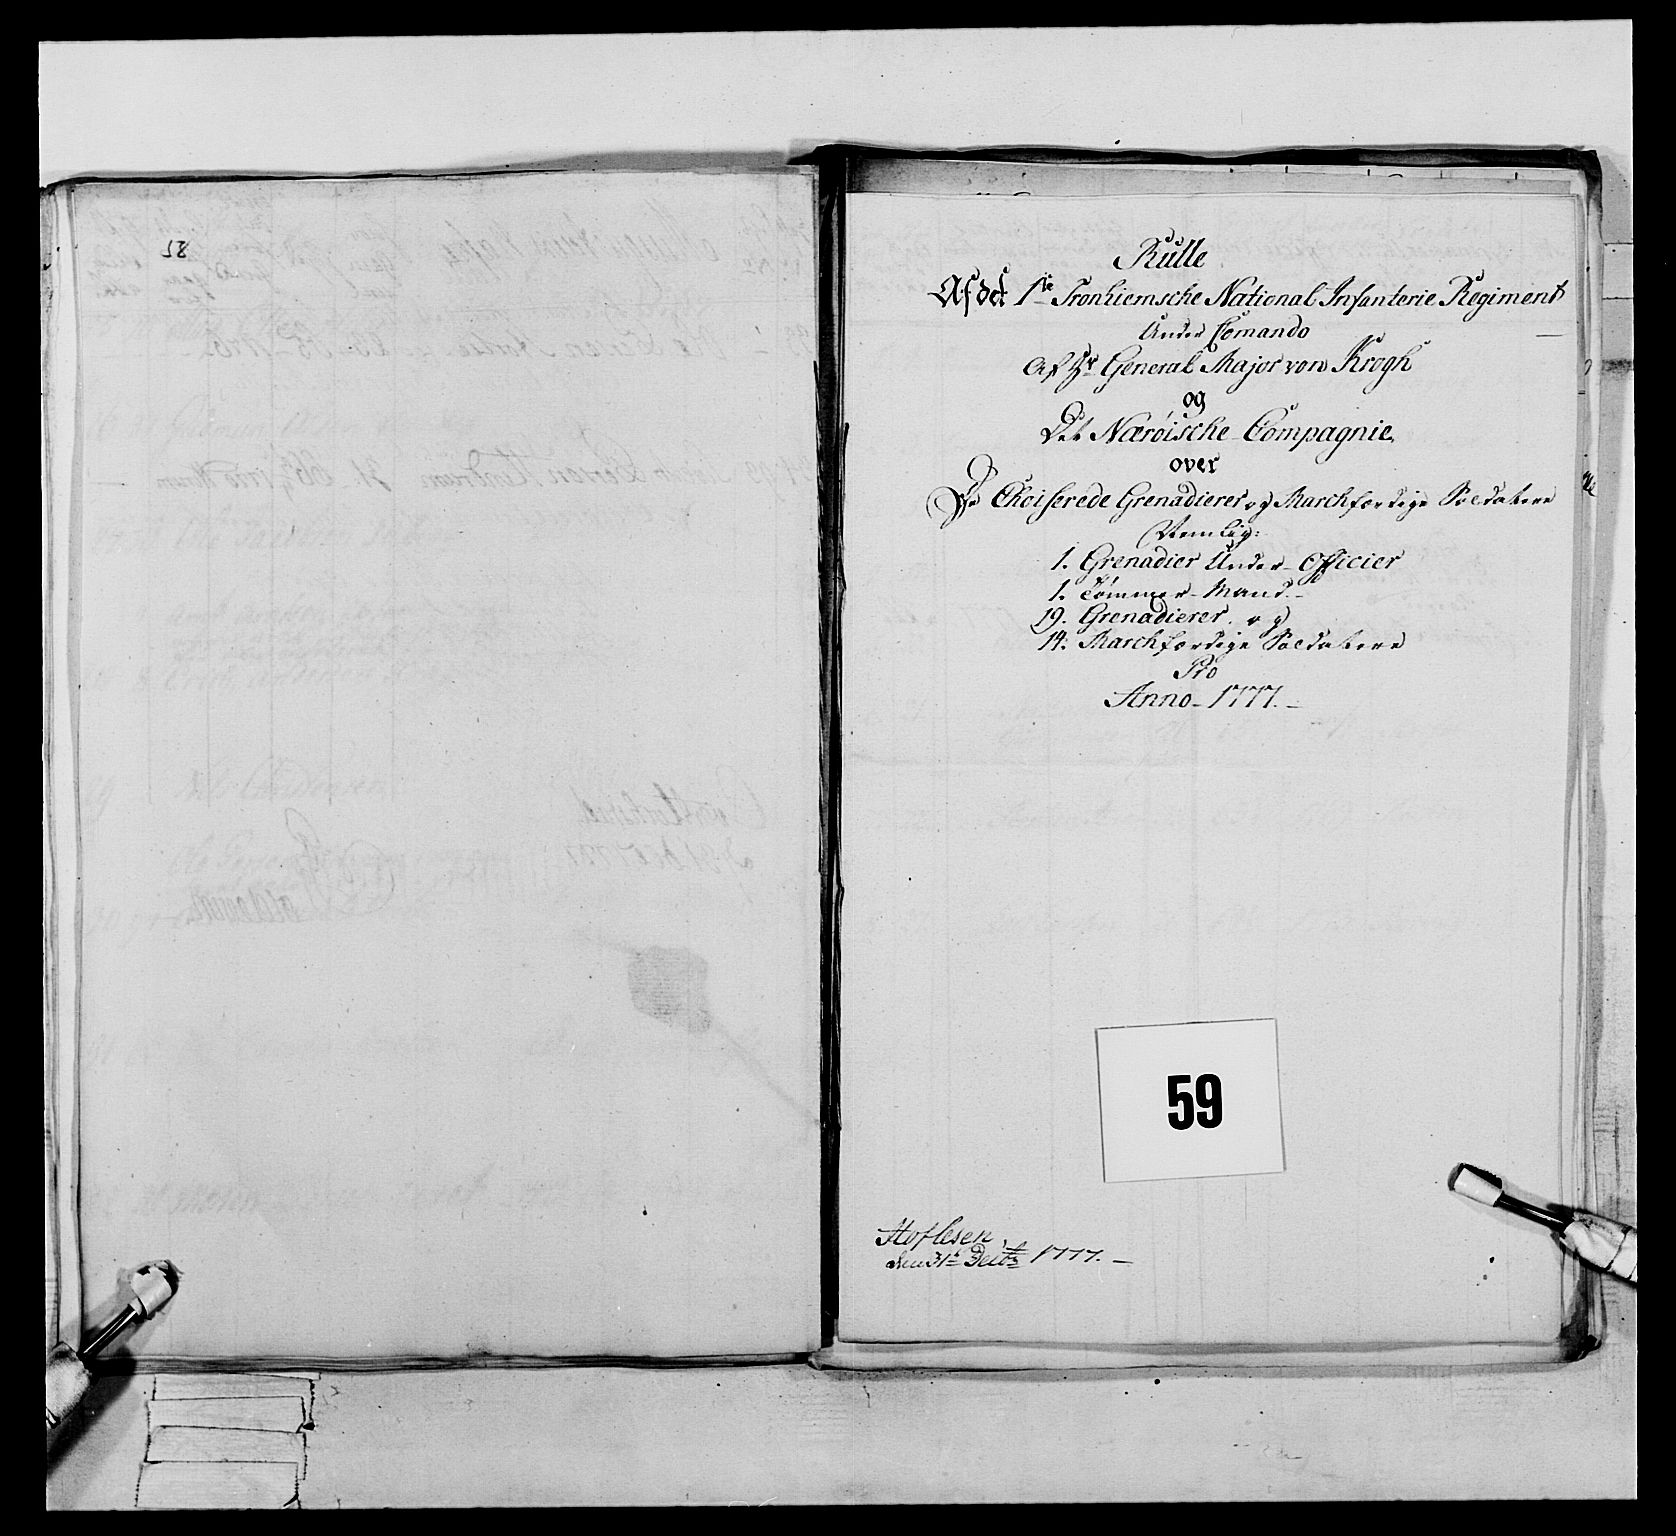 58
Rulle
Af det 1te Tronhiemske National Infanterie Regiment
Under Comando
af Hr General Major von Krogh
og
Det Nærøiske Compagnie,
over
De Choiserede Grenadierer og Marchfærdige Soldatere
Nemlig:
1. Grenadier Under-Officier
1. Tømmer-Mand.-
19. Grenadierer. og
14. Marchfærdige Soldatere
Pro
Anno-1777.-
59
Hoflesen,
den 31t Decbr 1777.-